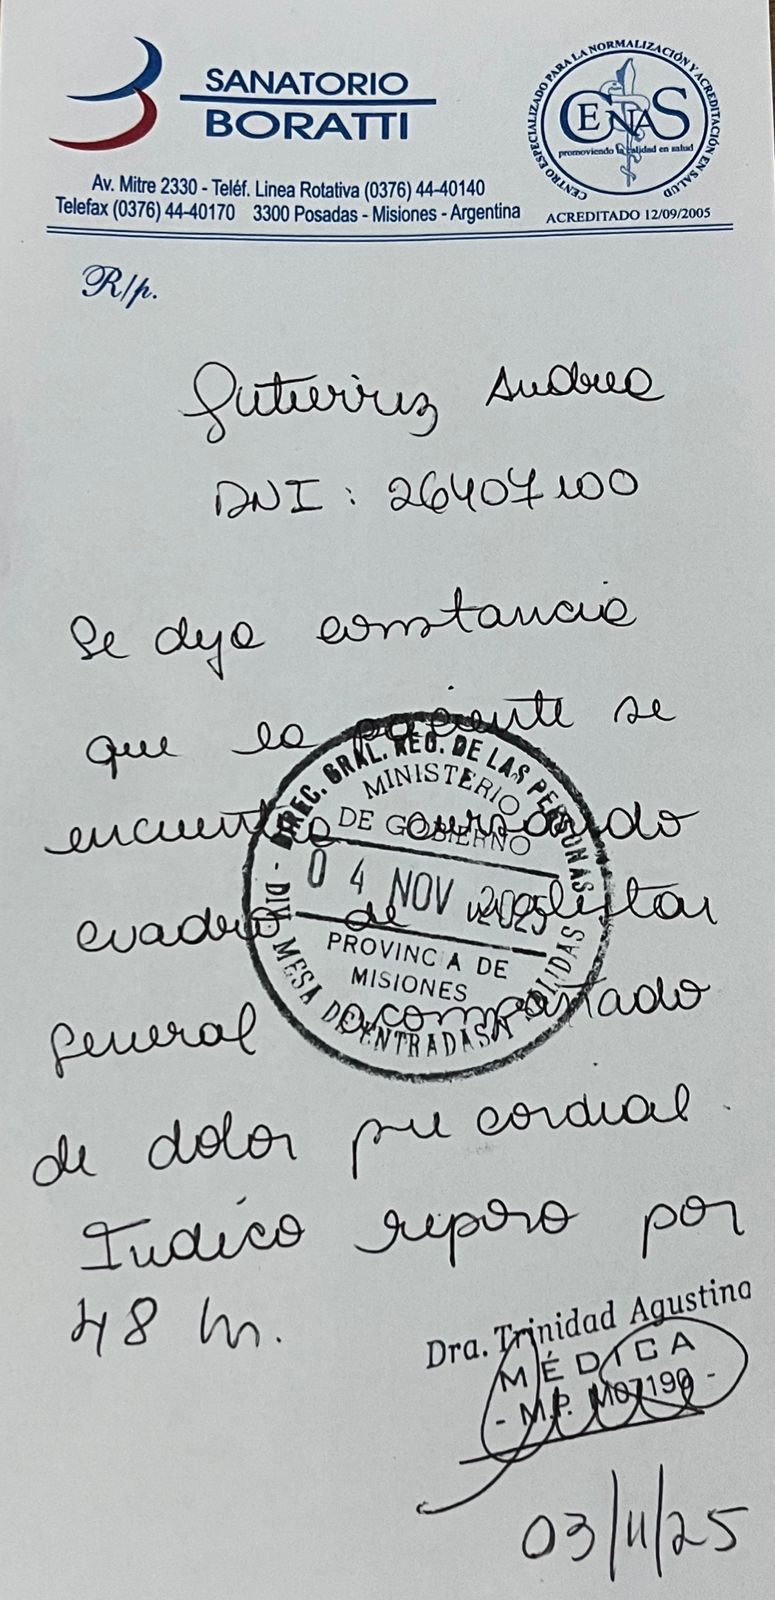 SANATORIO
BORATTI
CENTRO ESPECIALIZADO PARA LA NORMALIZACIÓN Y ACREDITACIÓN EN SALUD
CENAS
promoviendo la calidad en salud
ACREDITADO 12/09/2005
Av. Mitre 2330 - Teléf. Linea Rotativa (0376) 44-40140
Telefax (0376) 44-40170 3300 Posadas - Misiones - Argentina
R/p.
Gutierrez Andrea
DNI: 26407100
Se deja constancia
que la paciente se
encuentra cursando
cuadro de malestar
general acompañado
de dolor precordial.
Indico reposo por
48 hs.
DIREC. GRAL. REG. DE LAS PERSONAS
MINISTERIO
DE GOBIERNO
04 NOV 2025
PROVINCIA DE
MISIONES
- DIV. MESA DE ENTRADAS Y SALIDAS -
Dra. Trinidad Agustina
MÉDICA
- M.P. M07190 -
03/11/25